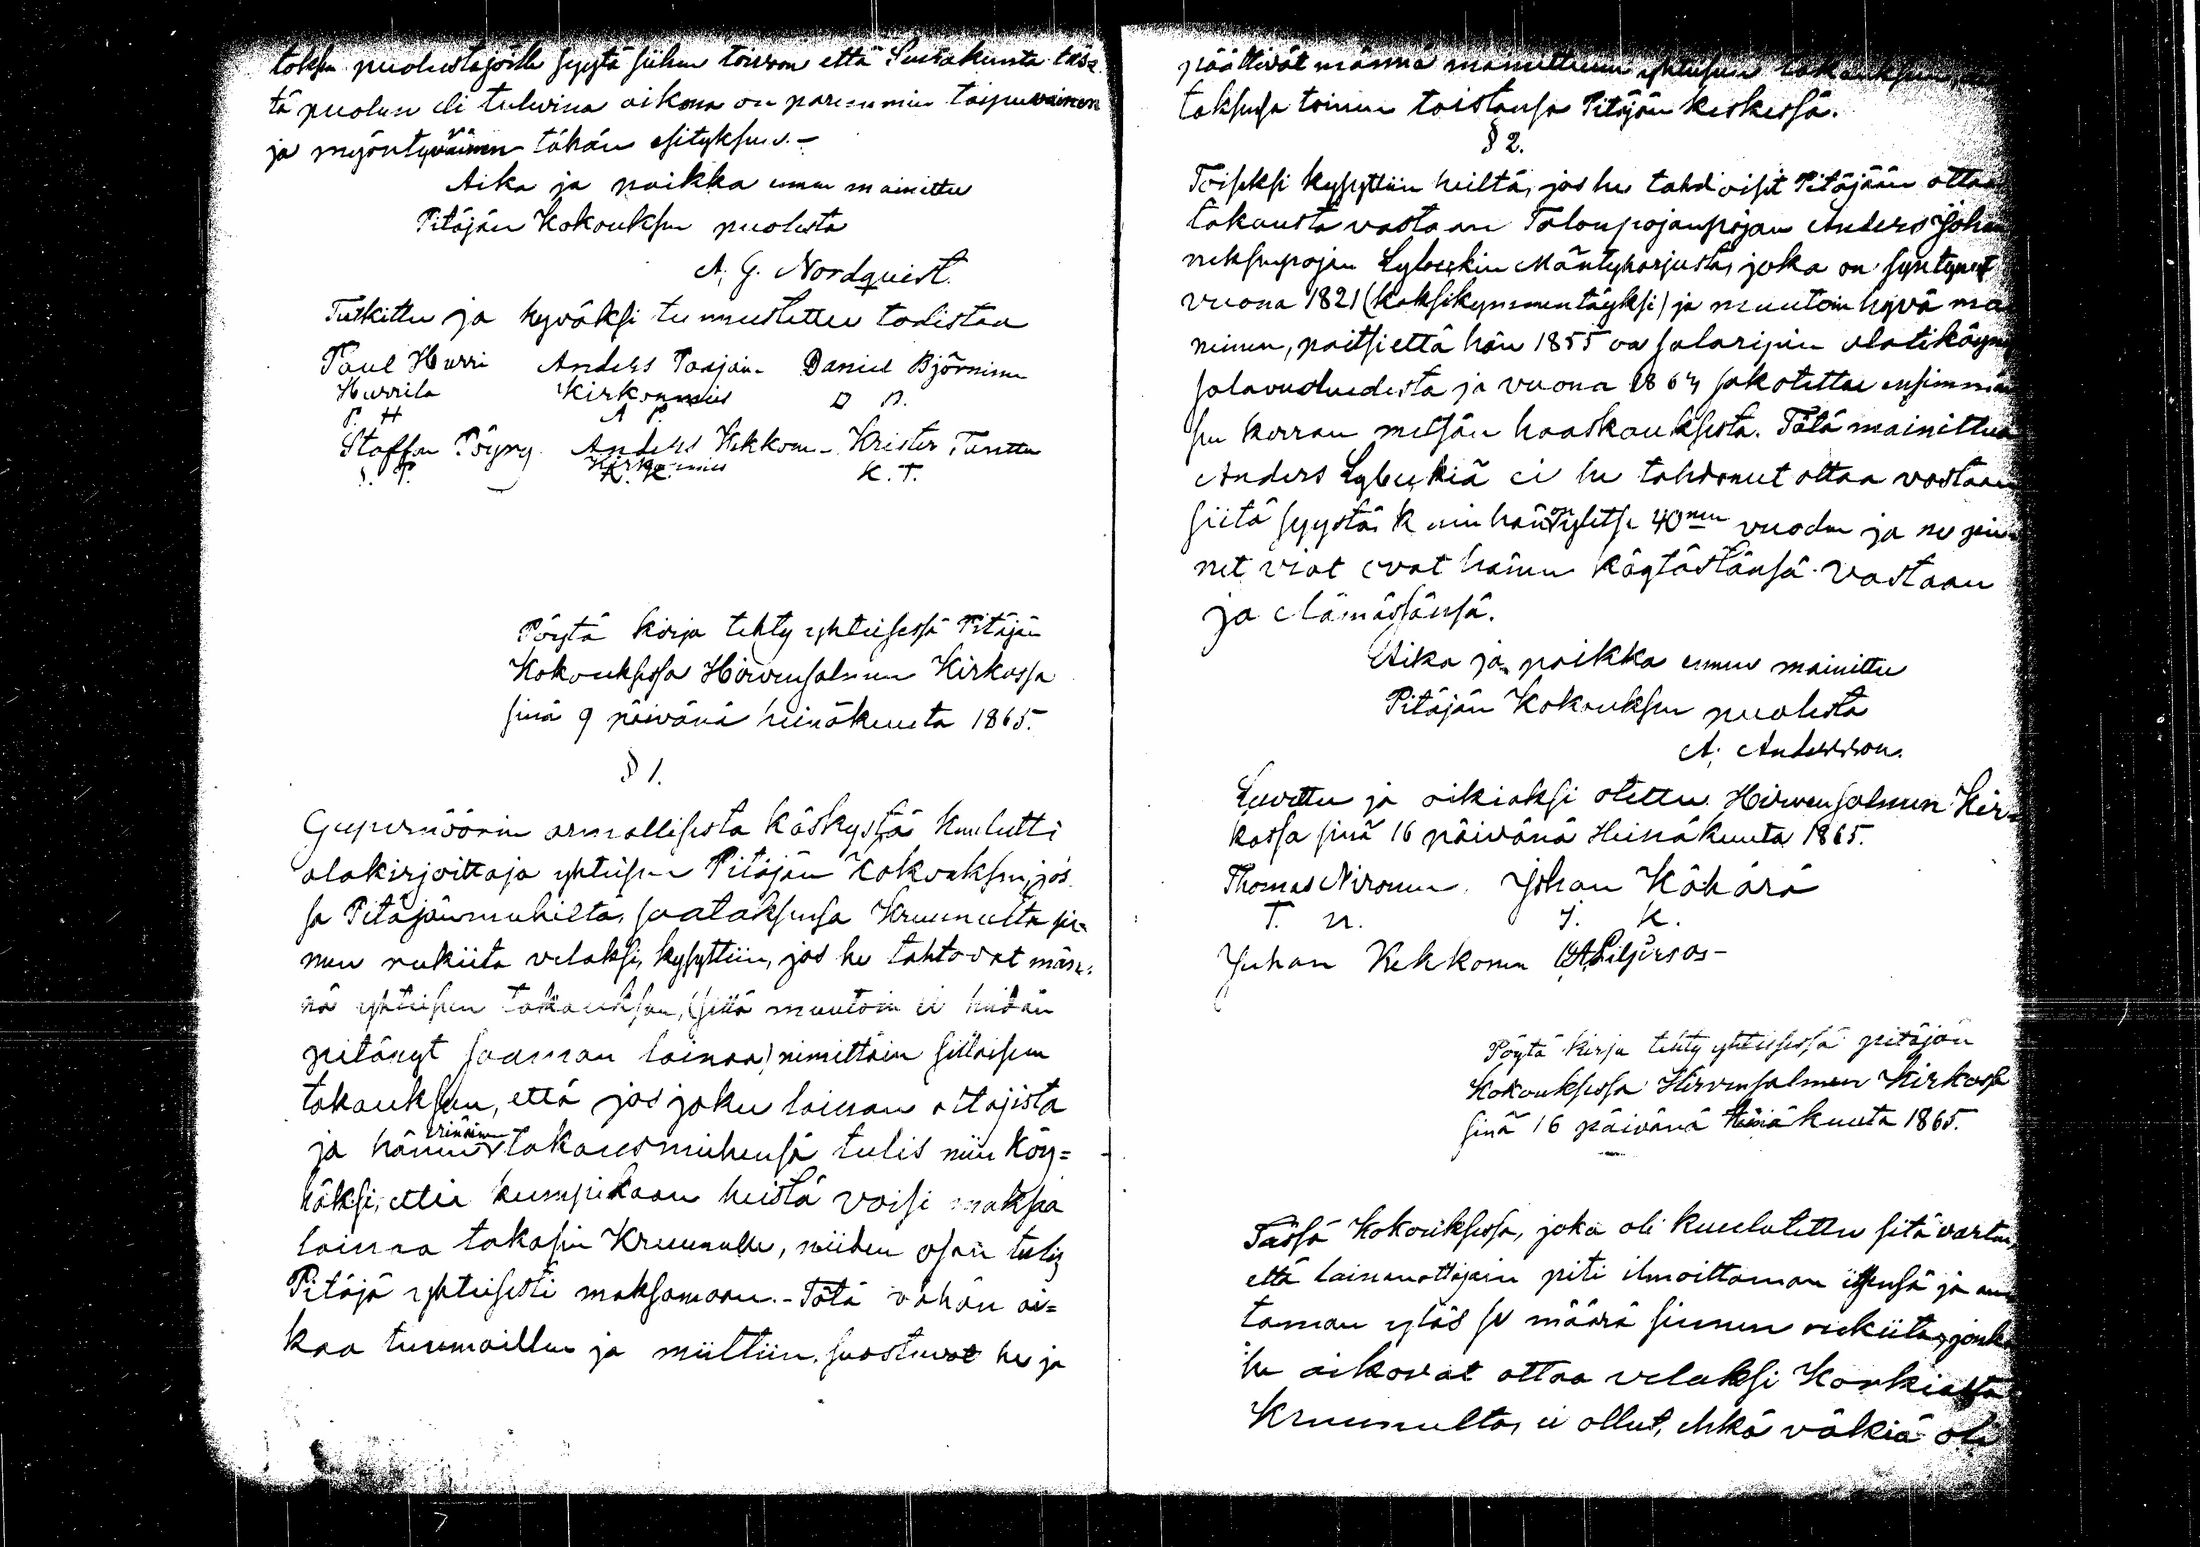 toksen puolustajoille syytä siihen toivoon että Seurakunta täs=
tä puoleen eli tulevina aikona on paremmin taipuvainen
ja myöntyväinen tähän esityksen.-
Aika ja paikka ennen mainittu
Pitäjän Kokouksen puolesta
A. G. Nordquist.
Tutkittu ja hyväksi tunnustettu todistaa
Paul Hurri Anders Paajan- Daniel Björninen
Hurrila Kirkonmies D B.
P. H A P.
Staffan Pöyry Anders Kekkon- Krister Tanttu
S. P. Kirkonmies K. T.
A. K.
Pöytä kirja tehty yhteisessä Pitäjän
Kokouksessa Hirvensalmen Kirkossa
sinä 9 päivänä heinäkuuta 1865.
§ 1.
Gupernöörin armollisesta käskystä kuulutti
alakirjoittaja yhteisen Pitäjän Kokouksen, jos=
sa Pitäjänmiehiltä, saataksensa Kruunulta sie=
men rukiita velaksi, kysyttiin, jos he tahtovat män=
nä yhteiseen takaukseen, (sillä muutoin ei heidän
pitänyt saaman lainaa) nimittäin sillaiseen
takaukseen, että jos joku lainan ottajista
ja hänen erinäinen takausmiehensä tulis niin köy=
häksi, ettei kumpikaan heistä voisi maksaa
lainaa takasin Kruunulle, niiden osan tulis
Pitäjä yhteisesti maksamaan.- Tätä vähän ai=
kaa tuumailtu ja mietittiin, suostuvat he ja
päättivät männä mainittuun yhteiseen takaukseen,
taksensa toinen toistansa Pitäjän keskessä.
§ 2.
Toiseksi kysyttiin heiltä, jos he tahdoisit Pitäjään ottaa
takausta vastaan Talonpojanpojan Anders Johan
neksenpojan Lybeckin Mäntyharjusta, joka on syntynyt
vuona 1821 (kaksikymmentäyksi) ja muutoin hyvä mai
neinen, paitsi että hän 1855 on salaripin alatikäyny
salavuoteudesta ja vuona 1864 sakotettu ensimmäi
sen kerran metsän haaskauksesta. Tätä mainittua
Anders Lybeckiä ei he tahtoneet ottaa vastaan
siitä syystä, kuin hän on ylitse 40nen vuoden ja ne pie
net viat ovat hänen käytöstänsä vastaan
ja elämässänsä.
Aika ja paikka ennen mainittu
Pitäjän Kokouksen puolesta
A. Andersson.
Luettu ja oikiaksi otettu Hirvensalmen Kir=
kossa sinä 16 päivänä Heinäkuuta 1865.
Thomas Nironen Johan Kähärä
T. N. J. K.
Juhan Kekkonen
Pöytä kirja tehty yhteisessä pitäjän
Kokouksessa Hirvensalmen Kirkossa
sinä 16 päivänä Heinäkuuta 1865.
Tässä Kokouksessa, joka oli kuulutettu sitä varten,
että lainanottajain piti ilmoittaman itsensä ja an
taman ylös se määrä siemen rukiita, jonka
he aikovat ottaa velaksi Korkialta
Kruunulta, ei ollut, ehkä väkiä oli